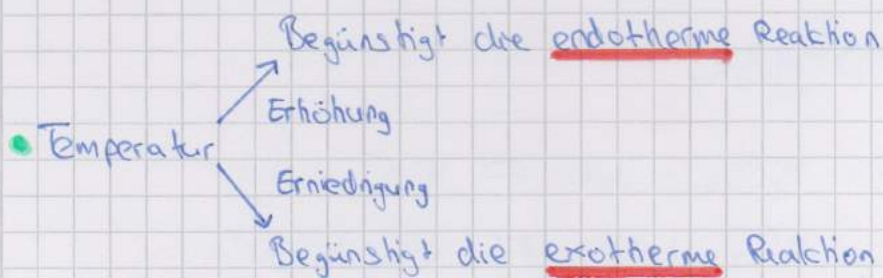 Begünstigt die endotherme Reaktion
Erhöhung
Temperatur
Erniedrigung
Begünstigt die exotherme Reaktion